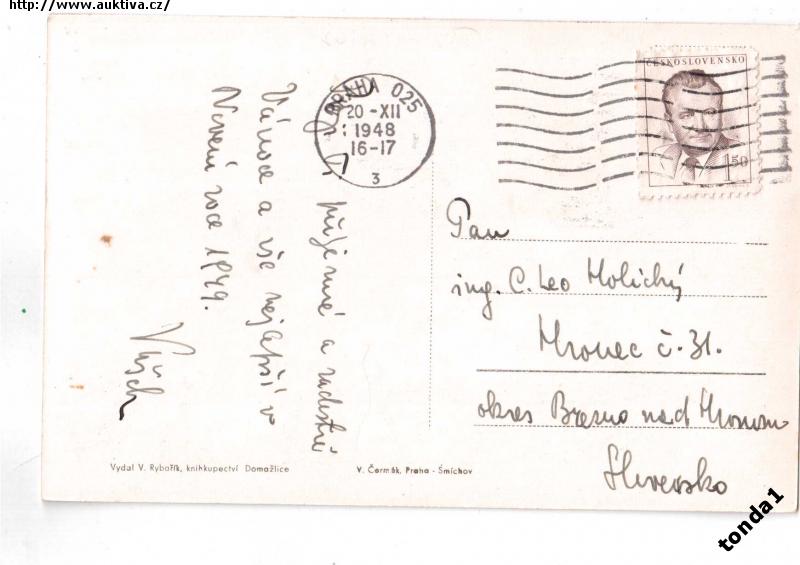 http://www.auktiva.cz/
PRAHA 025
20-XII
1948
16-17
3
ČESKOSLOVENSKO
1.50
příjemné a radostné
Vánoce a vše nejlepší v
Novém roce 1949.
Pan
ing. C. Leo Holický
Hronec č. 31.
okres Brezno nad Hronom
Slovensko
Vydal V. Rybařík, knihkupectví Domažlice
V. Čermák, Praha - Smíchov
tonda1